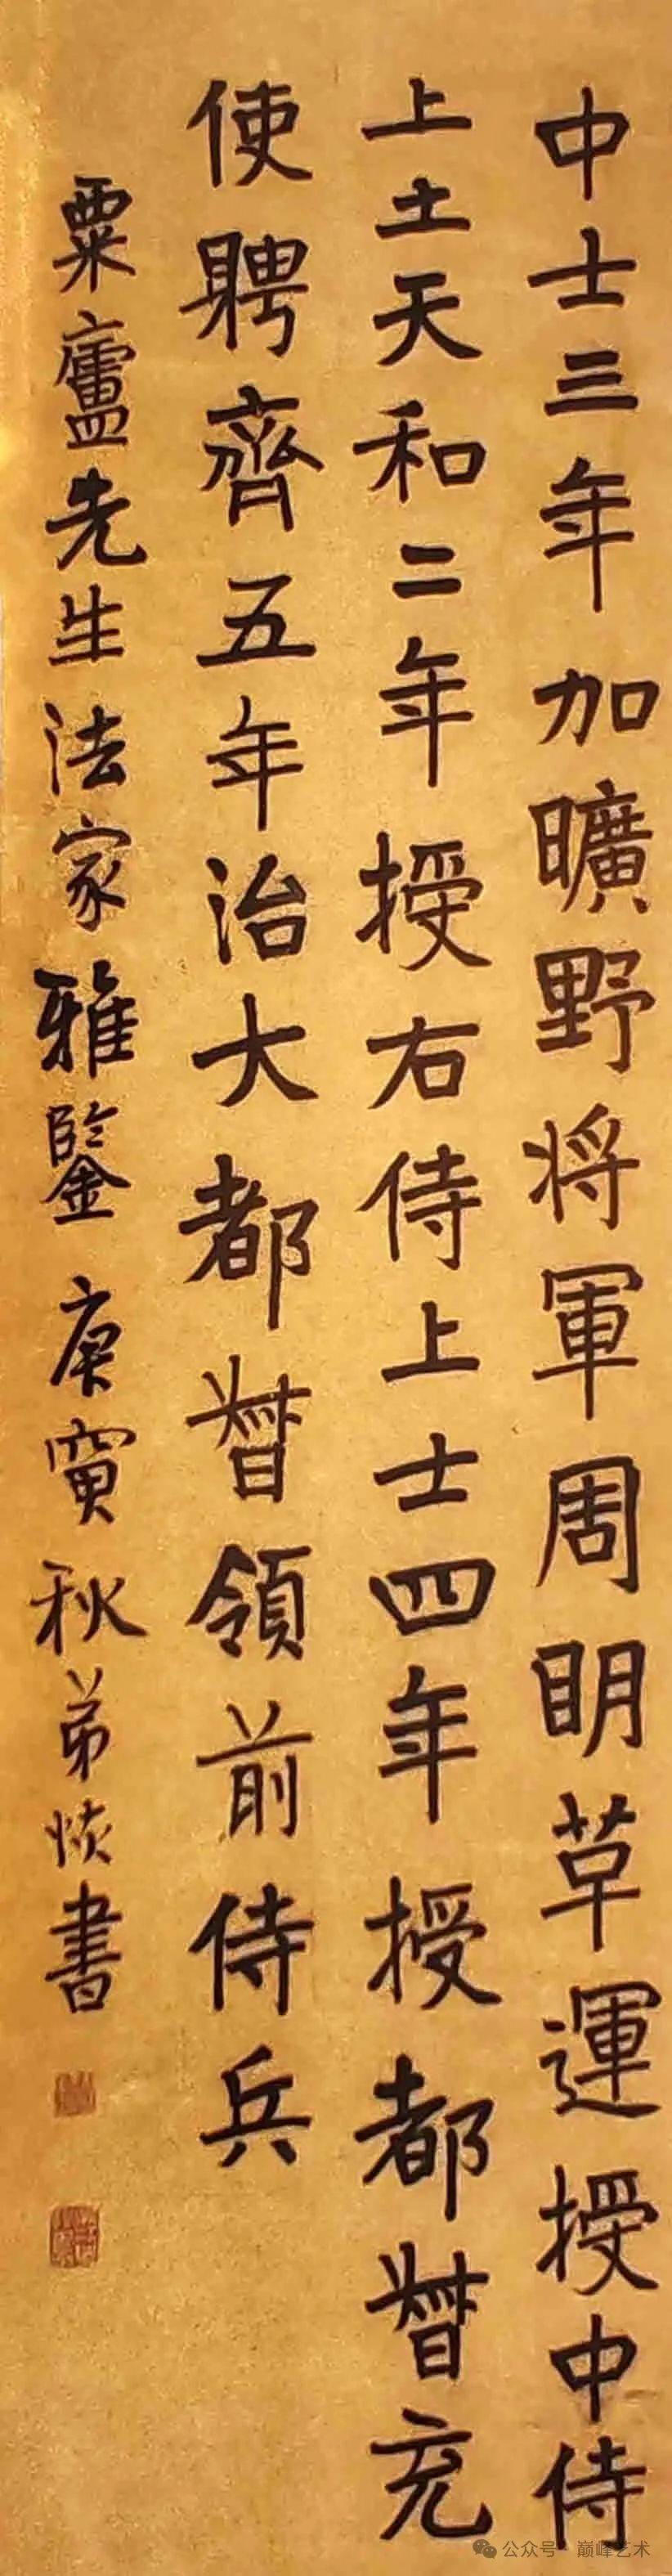 中士三年加曠野将軍周明草運授中侍
上土天和二年授右侍上士四年授都督充
使聘齊五年治大都督領前侍兵
粟廬先生法家雅鑒庚寅秋弟恢書
公众号·巅峰艺术